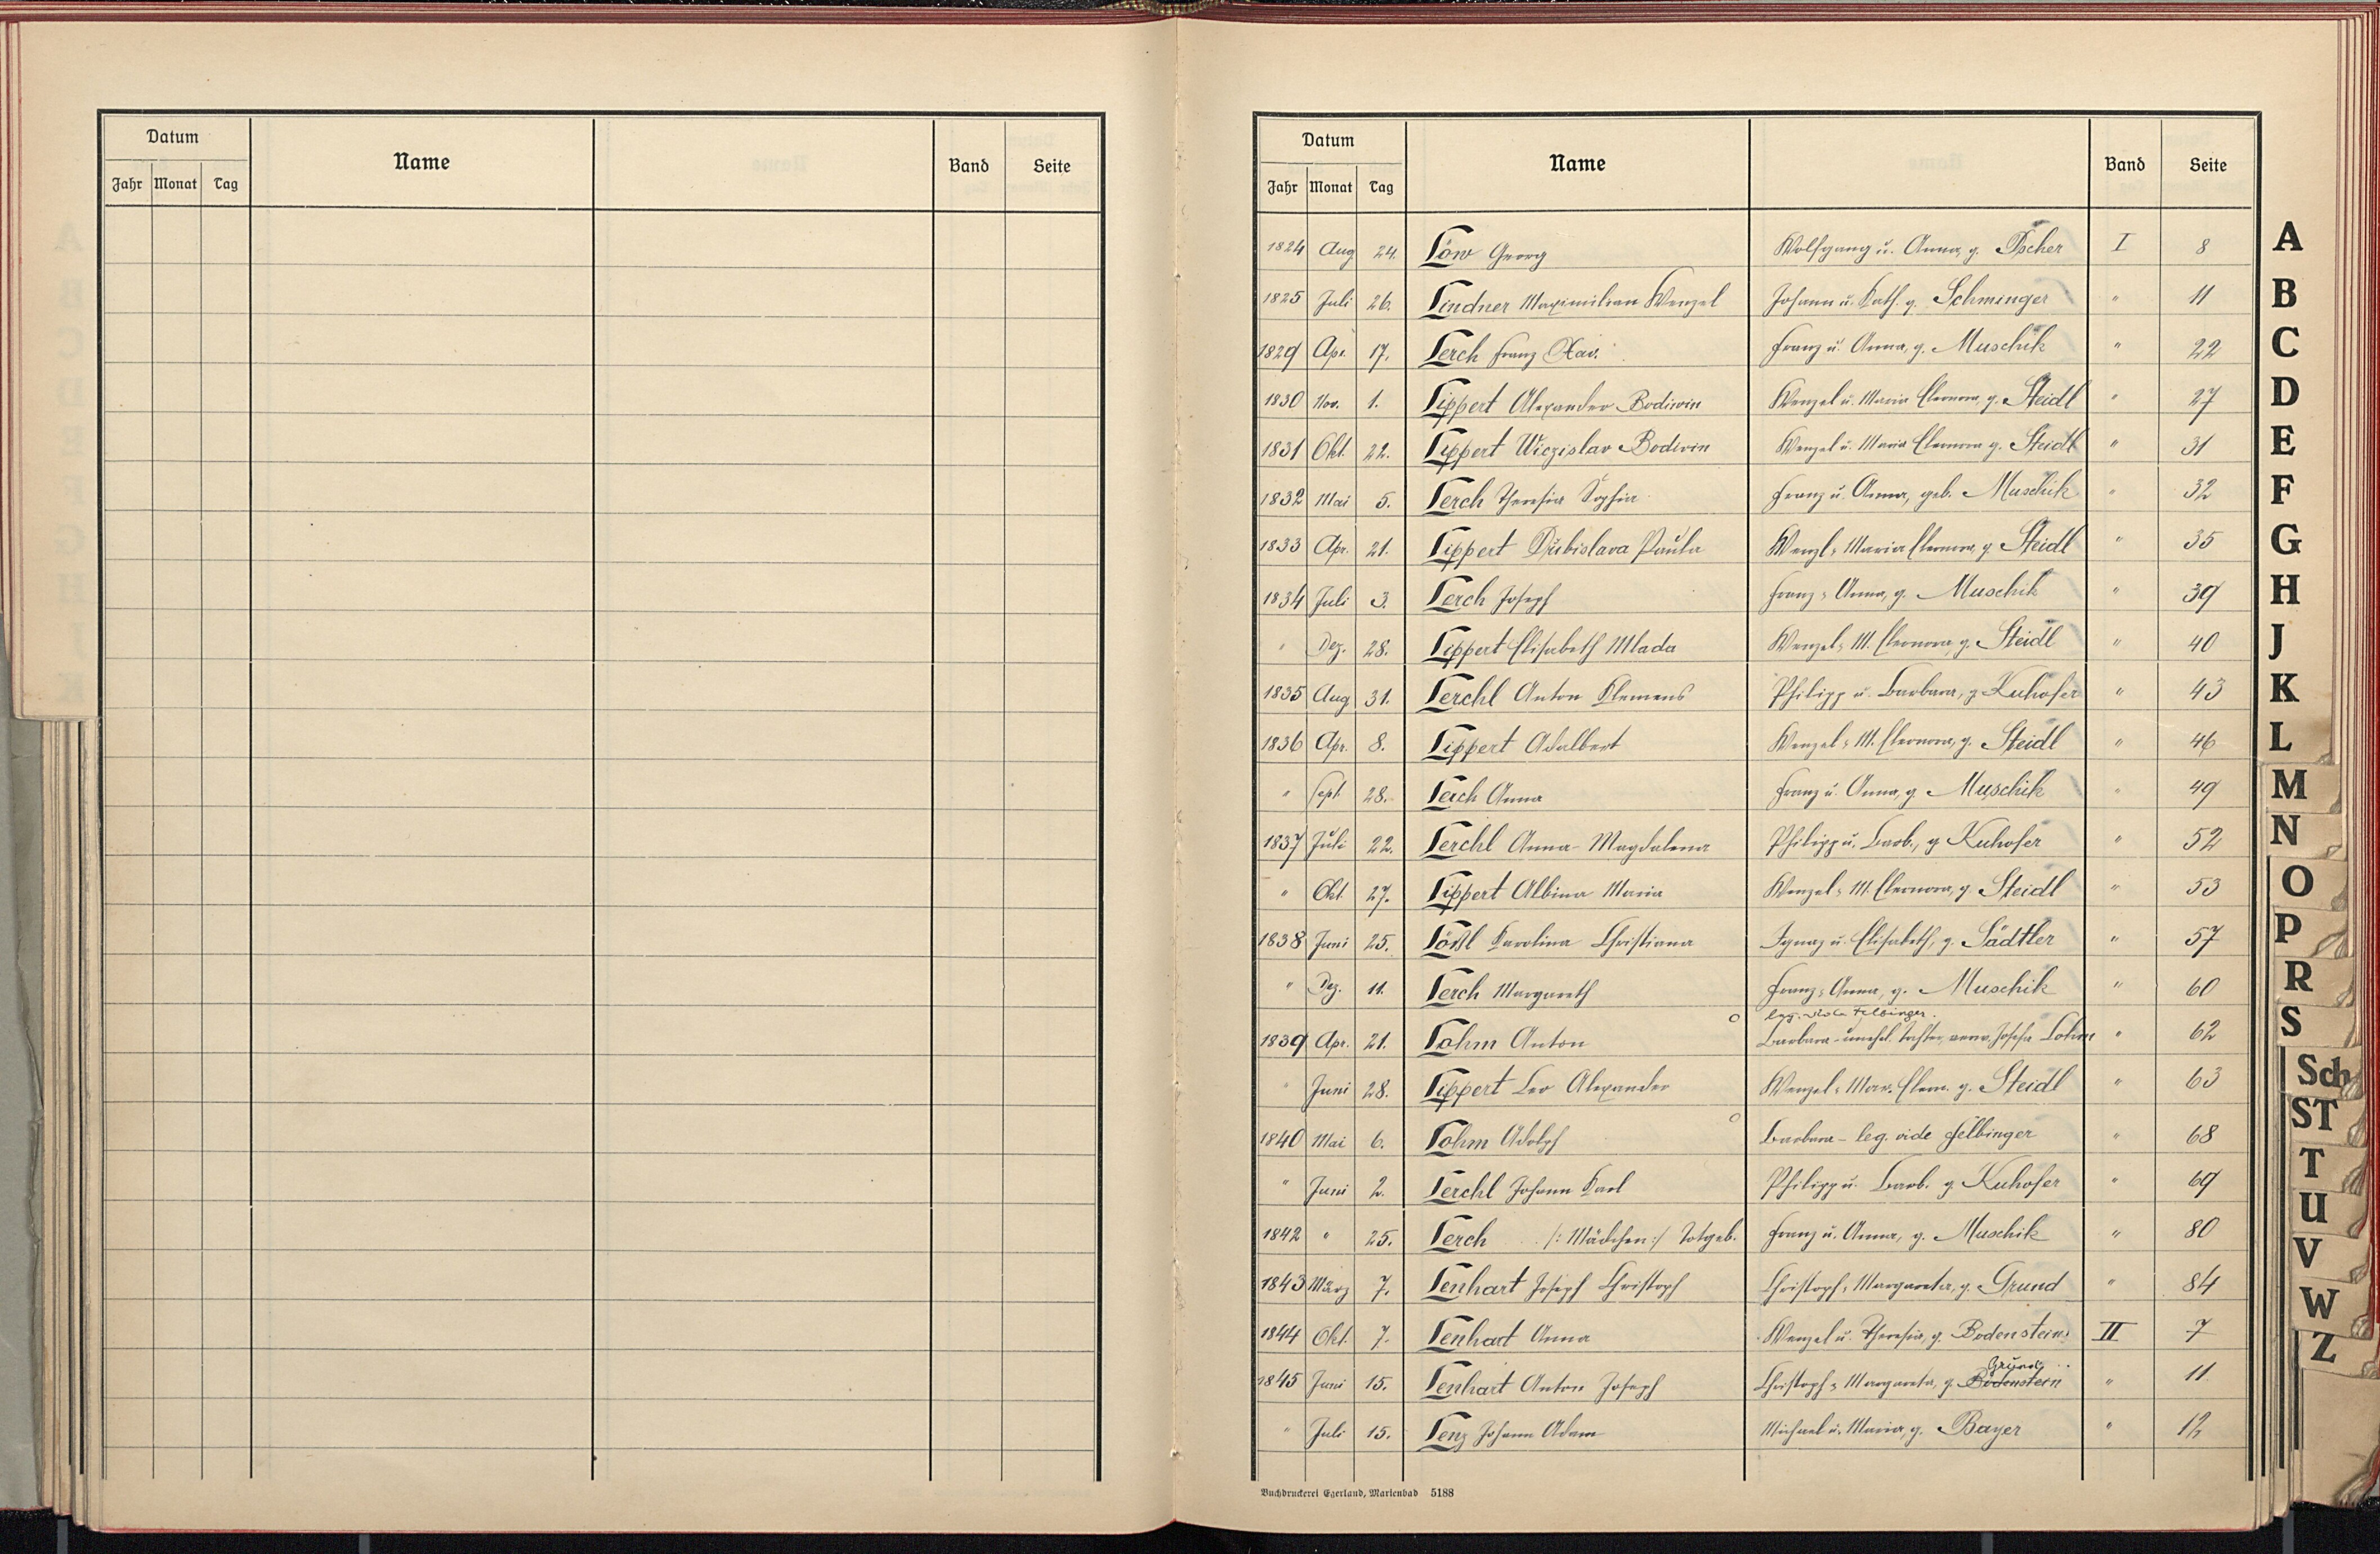 Datum Name Band Seite
Jahr Monat Tag
Datum Name Band Seite
Jahr Monat Tag
1824 Aug 24. Löw Georg Wolfgang u. Anna, g. I 8
1825 Juli 26. Lindner Maximilian Wenzel Johann u. Kath. g. Schminger " 11
1829 Apr. 17. Lerch Franz Xav. Franz u. Anna, g. Muschik " 22
1830 Nov. 1. Lippert Alexander Bodiwin Wenzel u. Maria Eleonora, g. Steidl " 27
1831 Okt. 22. Lippert Wiczislav Bodivin Wenzel u. Maria Eleonora g. Steidl " 31
1832 Mai 5. Lerch Theresia Sophia Franz u. Anna, geb. Muschik " 32
1833 Apr. 21. Lippert Paula Wenzl, Maria Eleonora, g. Steidl " 35
1834 Juli 3. Lerch Joseph Franz, Anna, g. Muschik " 39
" Dez. 28. Lippert Elisabeth Mlada Wenzel, M. Eleonora, g. Steidl " 40
1835 Aug 31. Lerchl Anton Klemens Philipp u. Barbara, g. Kuhofer " 43
1836 Apr. 8. Lippert Adalbert Wenzel, M. Eleonora, g. Steidl " 46
" Sept. 28. Lerch Anna Franz u. Anna, g. Muschik " 49
1837 Juli 22. Lerchl Anna Magdalena Philipp u. Barb., g Kuhofer " 52
" Okt. 27. Lippert Albina Maria Wenzel, M. Eleonora, g. Steidl " 53
1838 Juni 25. Lößl Karolina Christiana Ignaz u. Elisabeth, g. Sädtler " 57
" Dez. 11. Lerch Margareth Franz, Anna, g. Muschik " 60
leg. vide Felbinger.
1839 Apr. 21. Lohm Anton Barbara unehel. Tochter Josefa Lohm " 62
" Juni 28. Lippert Leo Alexander Wenzel, Mar. Eleon. g. Steidl " 63
1840 Mai 6. Lohm Adolph Barbara - leg. vide Felbinger " 68
" Juni 2. Lerchl Johann Karl Philipp u. Barb. g Kuhofer " 69
1842 " 25. Lerch /: Mädchen :/ Totgeb. Franz u. Anna, g. Muschik " 80
1843 März 7. Lenhart Joseph Christoph Christoph, Margareta, g. Grund " 84
1844 Okt. 7. Lenhart Anna Wenzel u. Theresia, g. Bodenstein II 7
Grund
1845 Juni 15. Lenhart Anton Joseph Christoph, Margareta, g. Bodenstein " 11
" Juli 15. Lenz Johann Adam Michael u. Maria, g. Bayer " 12
Buchdruckerei Egerland, Marienbad 5188
A
B
C
D
E
F
G
H
J
K
L
M
N
O
P
R
S
Sch
ST
T
U
V
W
Z